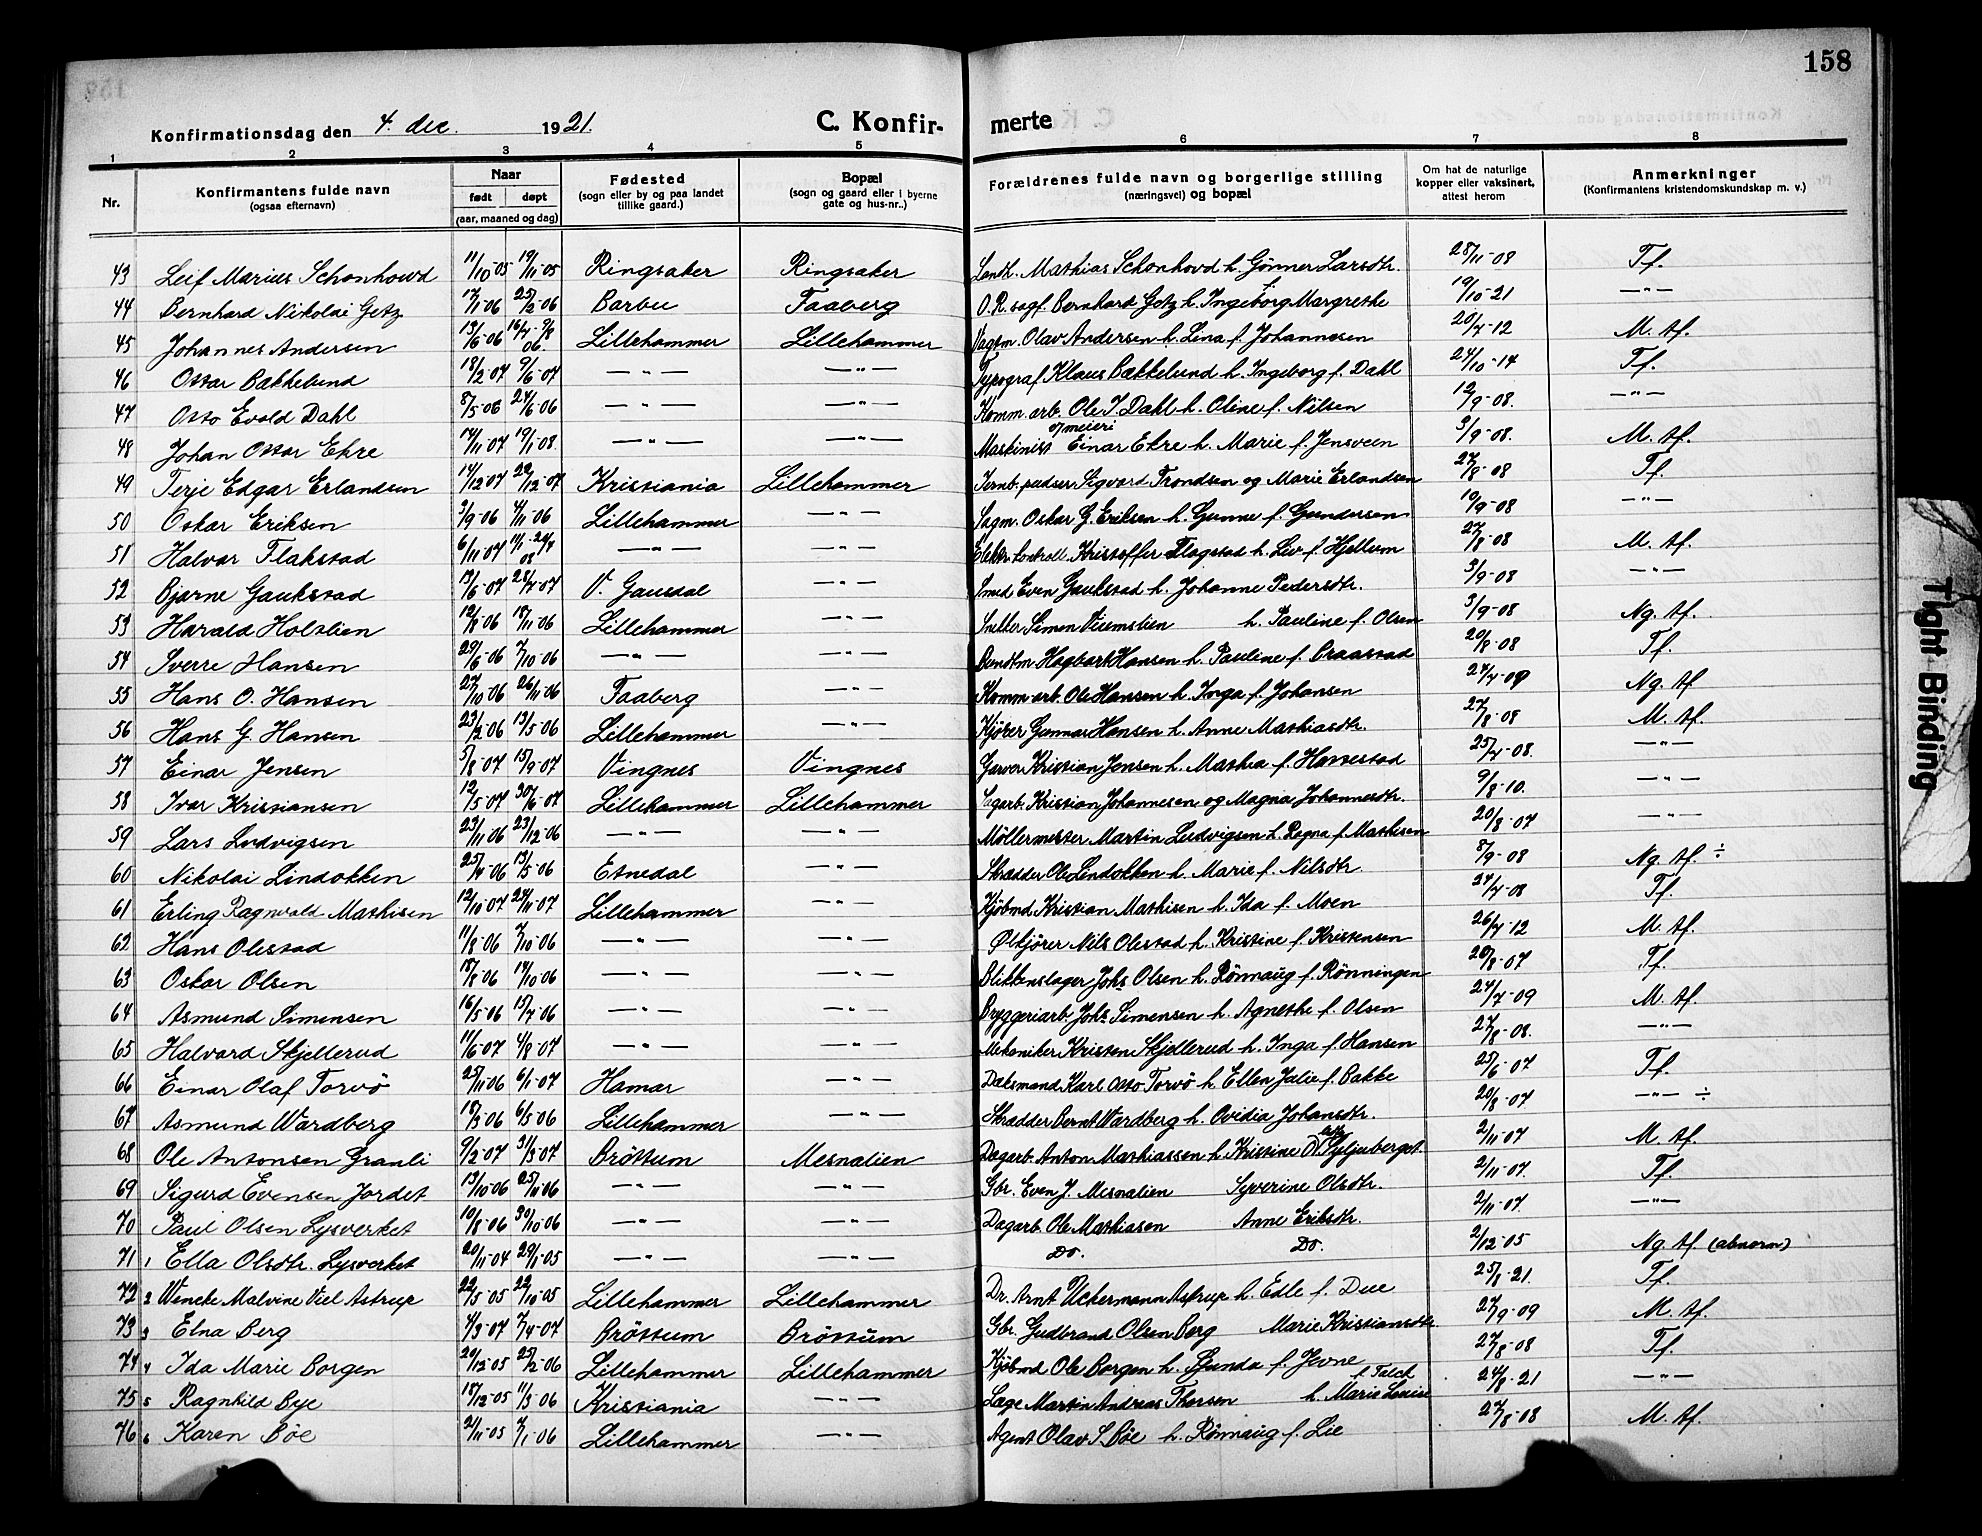 158
Konfirmationsdag den 4. dec. 1921. C. Konfir- merte
1 2 3 4 5 6 7 8
Nr. Konfirmantens fulde navn (ogsaa efternavn) Naar født døpt (aar, maaned og dag) Fødested (sogn eller by og paa landet tillike gaard.) Bopæl (sogn og gaard eller i byerne gate og hus-nr..) Forældrenes fulde navn og borgerlige stilling (næringsvei) og bopæl Om hat de naturlige kopper eller vaksinert, attest herom Anmerkninger (Konfirmantens kristendomskundskap m. v.)
43 Leif Marius Schonhowd 11/10-05 19/11-05 Ringsaker Ringsaker Landh. Mathias Schonhovd h. Gönner Larsdtr. 28/11-08 Tf.
44 Bernhard Nikolai Getz 17/1-06 25/2-06 Barbu Faaberg O.R.sagf. Bernhard Getz h. Ingeborg Margrethe 19/10-21 —"—
45 Johannes Andersen 13/6-06 16/7-9/8 06. Lillehammer Lillehammer Vagtm. Olav Andersen h. Lina f. Johannesen 20/7-12 M. tf.
46 Ottar Bækkelund 18/2-07 9/6-07 —"— —"— Typograf Klaus Bækkelund h. Ingeborg f. Dahl 24/10-14 Tf.
47 Otto Evald Dahl 8/5-06 24/6-06 —"— —"— Komm. arb. Ole J. Dahl h. Oline f. Nilsen 12/9-08. —"—
48 Johan Ottar Ekre 14/11-07 19/1-08. —"— —"— Maskinist v/ meieri Einar Ekre h. Marie f. Jensveen 3/9-08. M. tf.
49 Terje Edgar Erlandsen 14/12-07 29/12-07 Kristiania Lillehammer Jernb. pudser Sigvard Trondsen og Marie Erlandsen 27/8-08 Tf.
50 Oskar Eriksen 3/9-06 4/11-06 Lillehammer —"— Sagm. Oskar G. Eriksen h. Gunne f. Gundersen 10/9-08 —"—
51 Halvar Flakstad 6/11-07 —"— —"— Elektr. kontroll. Kristoffer Flagstad h. Liv f. Hjellum 27/8-08 M. tf.
52 Bjarne Gaukstad 13/6-07 28/7-07 V. Gausdal —"— Smed Even Gaukstad h. Johanne Pedersdtr. 3/9-08 —"—
53 Harald Holstien 12/8-06 18/11-06 Lillehammer —"— Snekker Simen h. Pauline f. Olsen 3/9-08 Ng. tf.
54 Sverre Hansen 29/6-06 7/10-06 —"— —"— Hagbart Hansen h. Pauline f. Braastad 20/8-08 Tf.
55 Hans O. Hansen 27/10-06 26/11-06 Faaberg —"— Komm. arb. Ole Hansen h. Inga f. Johansen 24/7-09 Ng. tf
56 Hans G. Hansen 23/2-06 13/5-06 Lillehammer —"— Kjörer Gunnar Hansen h. Anne Mathiasdtr. 27/8-08 M. tf.
57 Einar Jensen 5/8-07 15/9-07 Vingnes Vingnes Garver Kristian Jensen h. Mathea f. Hovestad 25/7-08. —"—
58 Ivar Kristiansen 12/5-07 30/6-07 Lillehammer Lillehammer Sagarb. Kristian Johannesen og Magna Johannesdtr. 9/8-10. —"—
59 Lars Ludvigsen 23/11-06 23/12-06 —"— —"— Möllermester Martin Ludvigsen h. Ragna f. Mathisen 20/8-07 —"—
60 Nikolai Lindokken 25/4-06 13/5-06 Etnedal —"— Skrædder Ole Lindokken h. Marie f. Nilsdtr. 8/9-08 Ng. tf. ÷
61 Erling Ragnvald Mathisen 12/10-07 24/11-07 Lillehammer —"— Kjöbmd. Kristian Mathisen h. Ida f. Moen 24/7-08 Tf.
62 Hans Olestad 11/8-06 7/10-06 —"— —"— Ølkjörer Nils Olestad h. Kristine f. Kristensen 26/7-12 M. tf.
63 Oskar Olsen 18/8-06 14/10-06 —"— —"— Blikkenslager Johs Olsen h. Rönnaug f. Rönningen 20/8-07 Tf.
64 Asmund Simensen 16/5-06 15/7-06 —"— —"— Bryggeriarb. Johs Simensen h. Agnethe f. Olsen 24/7-09 M. tf.
65 Halvard Skjellerud 11/6-07 4/8-07 —"— —"— Mekaniker Kristen Skjellerud h. Inga f. Hansen 27/8-08. —"—
66 Einar Olaf Torvö 25/11-06 6/1-07 Hamar —"— Dæksmand Karl Otto Torvö h. Ellen Jalie f. Bakke 25/6-07 Tf.
67 Asmund Wardberg 18/3-06 6/5-06 Lillehammer —"— Skrædder Bernt Wardberg h. Ovidia Johansdtr. 20/8-07 —"— ÷
68 Ole Antonsen Granli 9/2-07 31/3-07 Bröttum Mesnalien Dagarb. Anton Mathiassen h. Kristine 2/11-07 M. tf.
69 Sigurd Evensen Jordet 13/10-06 25/11-06 —"— —"— Gbr. Even J. Mesnalien Syverine Olsdtr. 2/11-07. Tf.
70 Paul Olsen Lysverket 10/8-06 30/10-06 —"— —"— Dagarb. Ole Mathiasen Anne Eriksdtr. 2/11-07. —"—
71 1 Ella Olsdtr. Lysverket 20/11-04 29/1-05 —"— —"— Do. Do. 2/12-05 Ng. tf. (abnorm)
72 2 Wencke Malvine Viel Astrup 22/5-05 22/10-05 Lillehammer Lillehammer Dr. Arnt Uckermann Astrup h. Edle f. Due 25/8-21. Tf.
73 3 Elna Berg 4/3-07 7/4-07 Bröttum Bröttum Gbr. Gudbrand Olsen Berg Marie Kristiansdtr. 27/9-09 M. tf.
74 4 Ida Marie Borgen 20/12-05 25/2-06 Lillehammer Lillehammer Kjöbmd. Ole Borgen h. Gunda f. Jevne 27/8-08 Tf.
75 5 Ragnhild Bye 18/12-05 11/3-06 Kristiania —"— Læge Martin Andreas Thorsen h. Marie Louise f. Falck 24/8-21 —"—
76 6 Karen Böe 2/11-05 7/1-06 Lillehammer —"— Agent Olav S. Böe h. Rönnaug f. Lie 27/8-08 M. tf.
Tight Binding